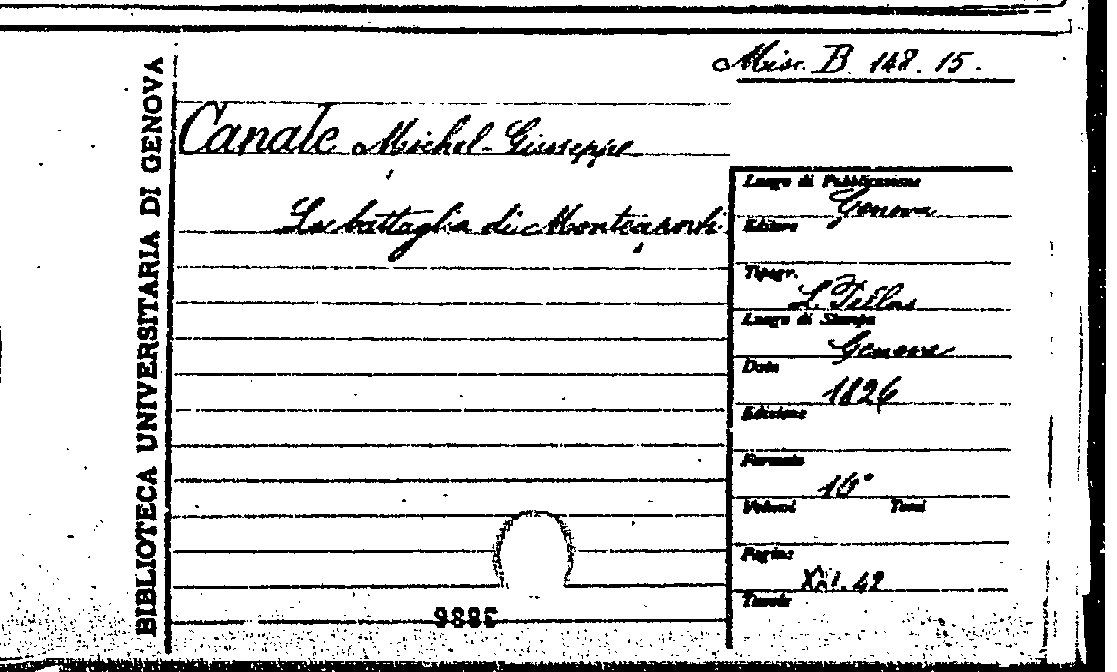 Misc. B. 148. 15.
BIBLIOTECA UNIVERSITARIA DI GENOVA
Canale Michel-Giuseppe
La battaglia di Monteaperti
Luogo di Pubblicazione
Genova
Editore
Tipogr.
L. Pellas
Luogo di Stampa
Genova
Data
1826
Edizione
Formato
16°
Volumi Tomi
Pagine
XVI. 42
Tavole